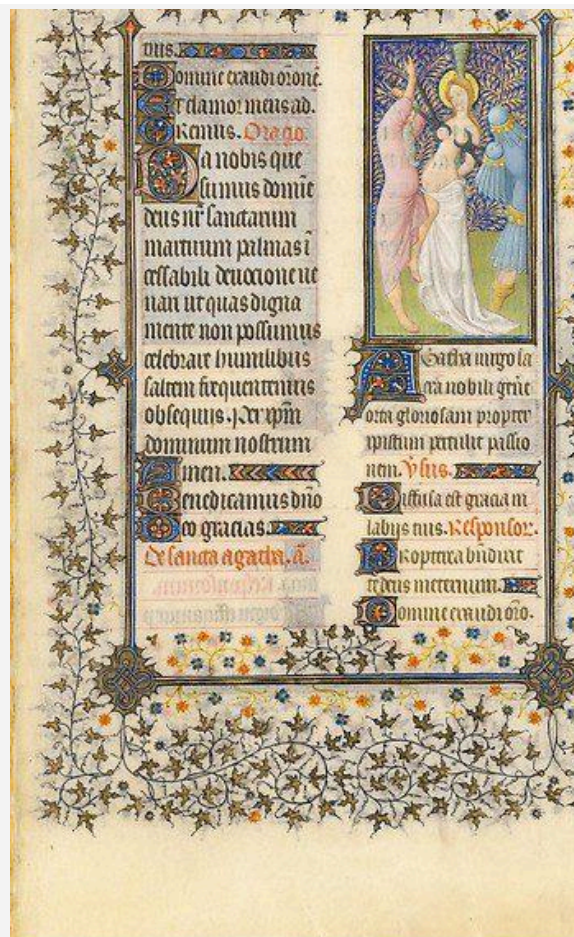 tuis.
Domine exaudi orōnē.
Et clamor meus ad.
Oremus. Oracio.
Da nobis que
sumus domīe
deus nr̄ sanctarum
martirum palmas ī
cessabili deuocione ue
nari ut quas digna
mente non possumus
celebrare humilibus
saltem frequentemus
obsequiis. Per ip̄m
dominum nostrum
Amen.
Benedicamus dn̄o
Deo gracias.
De sancta agatha. ā.
Agatha uirgo sa
cra nobili gn̄e
orta gloriosam propter
xpistum pertulit passio
nem. v̄sus.
Diffusa est gracia in
labiis tuis. Responsor.
Propterea b̄ndixit
te deus in eternum.
Domine exaudi oro.